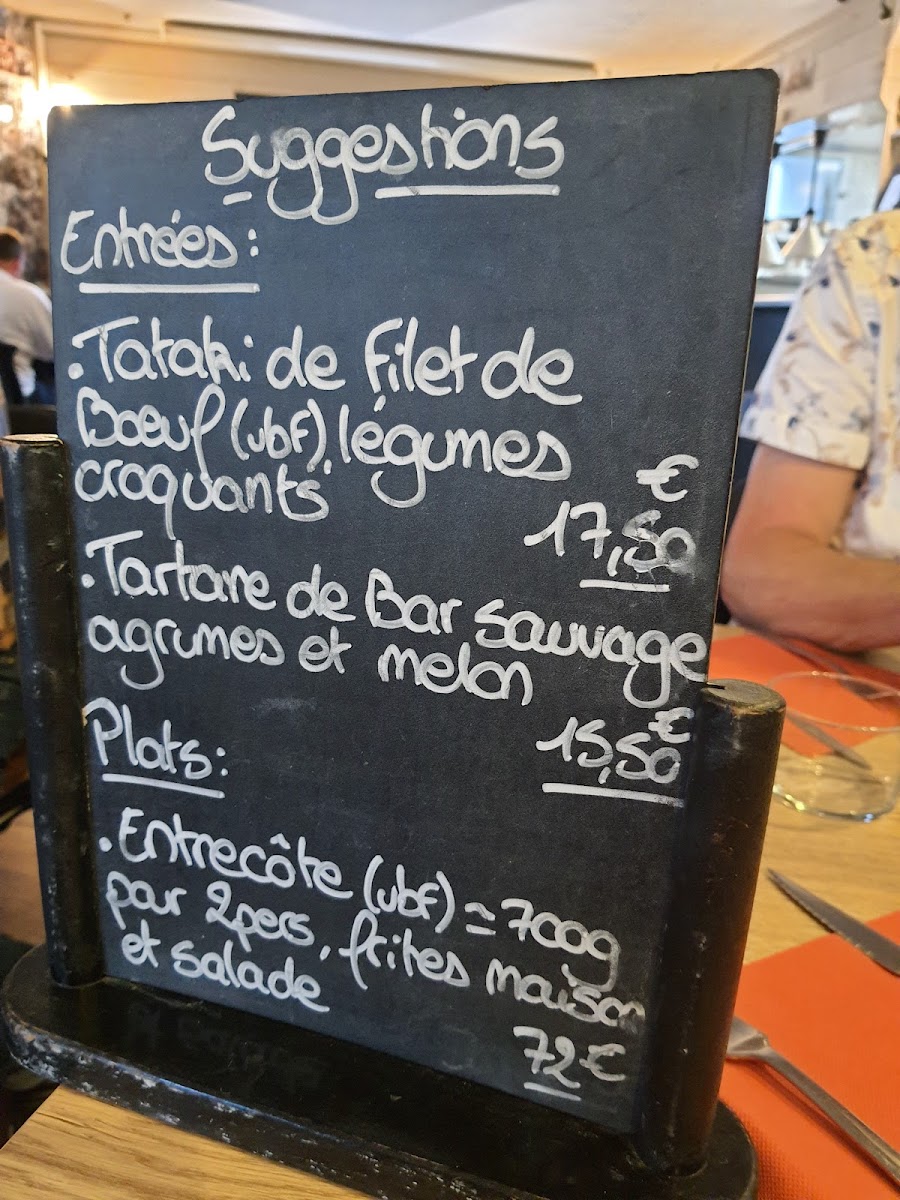 Suggestions
Entrées:
.Tataki de Filet de
Boeuf (vbf), légumes
croquants
€
17,50
.Tartare de Bar sauvage
agrumes et melon
€
15,50
Plats:
.Entrecôte (vbf) ≃ 700g
par 2pers, frites maison
et salade
72€